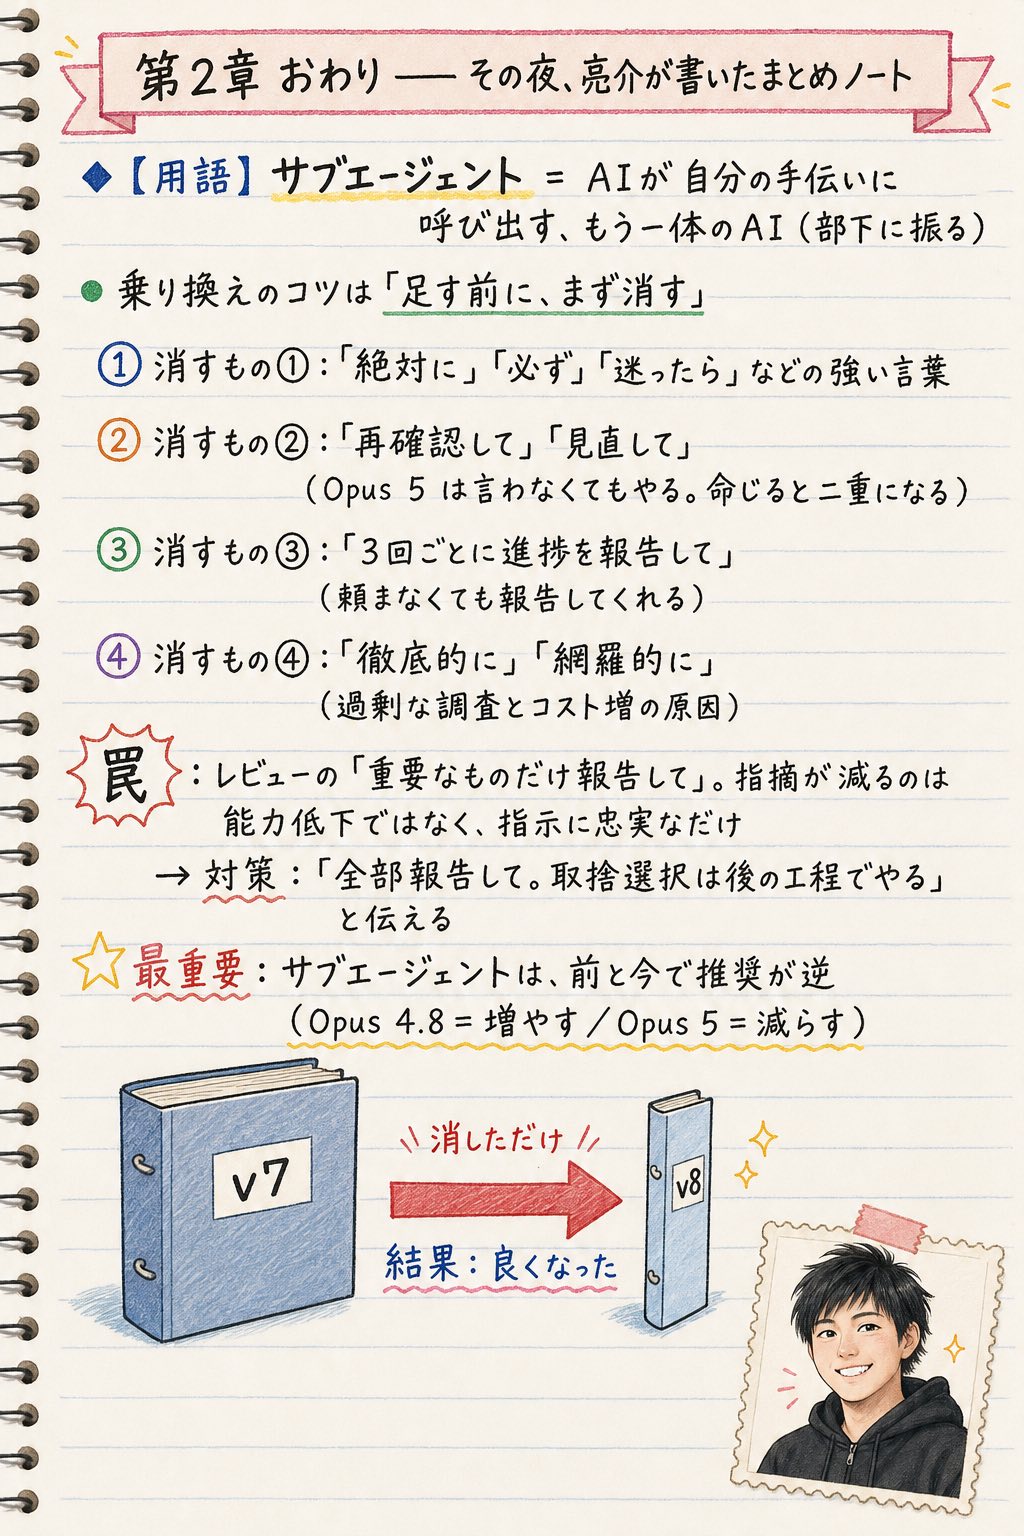 第2章 おわり ── その夜、亮介が書いたまとめノート
◆【用語】サブエージェント = AIが 自分の手伝いに
呼び出す、もう一体のAI（部下に振る）
● 乗り換えのコツは「足す前に、まず消す」
① 消すもの①：「絶対に」「必ず」「迷ったら」などの強い言葉
② 消すもの②：「再確認して」「見直して」
（Opus 5 は言わなくてもやる。命じると二重になる）
③ 消すもの③：「3回ごとに進捗を報告して」
（頼まなくても報告してくれる）
④ 消すもの④：「徹底的に」「網羅的に」
（過剰な調査とコスト増の原因）
罠：レビューの「重要なものだけ報告して」。指摘が減るのは
能力低下ではなく、指示に忠実なだけ
→ 対策：「全部報告して。取捨選択は後の工程でやる」
と伝える
最重要：サブエージェントは、前と今で推奨が逆
（Opus 4.8＝増やす／Opus 5＝減らす）
v7
消しただけ
結果：良くなった
v8